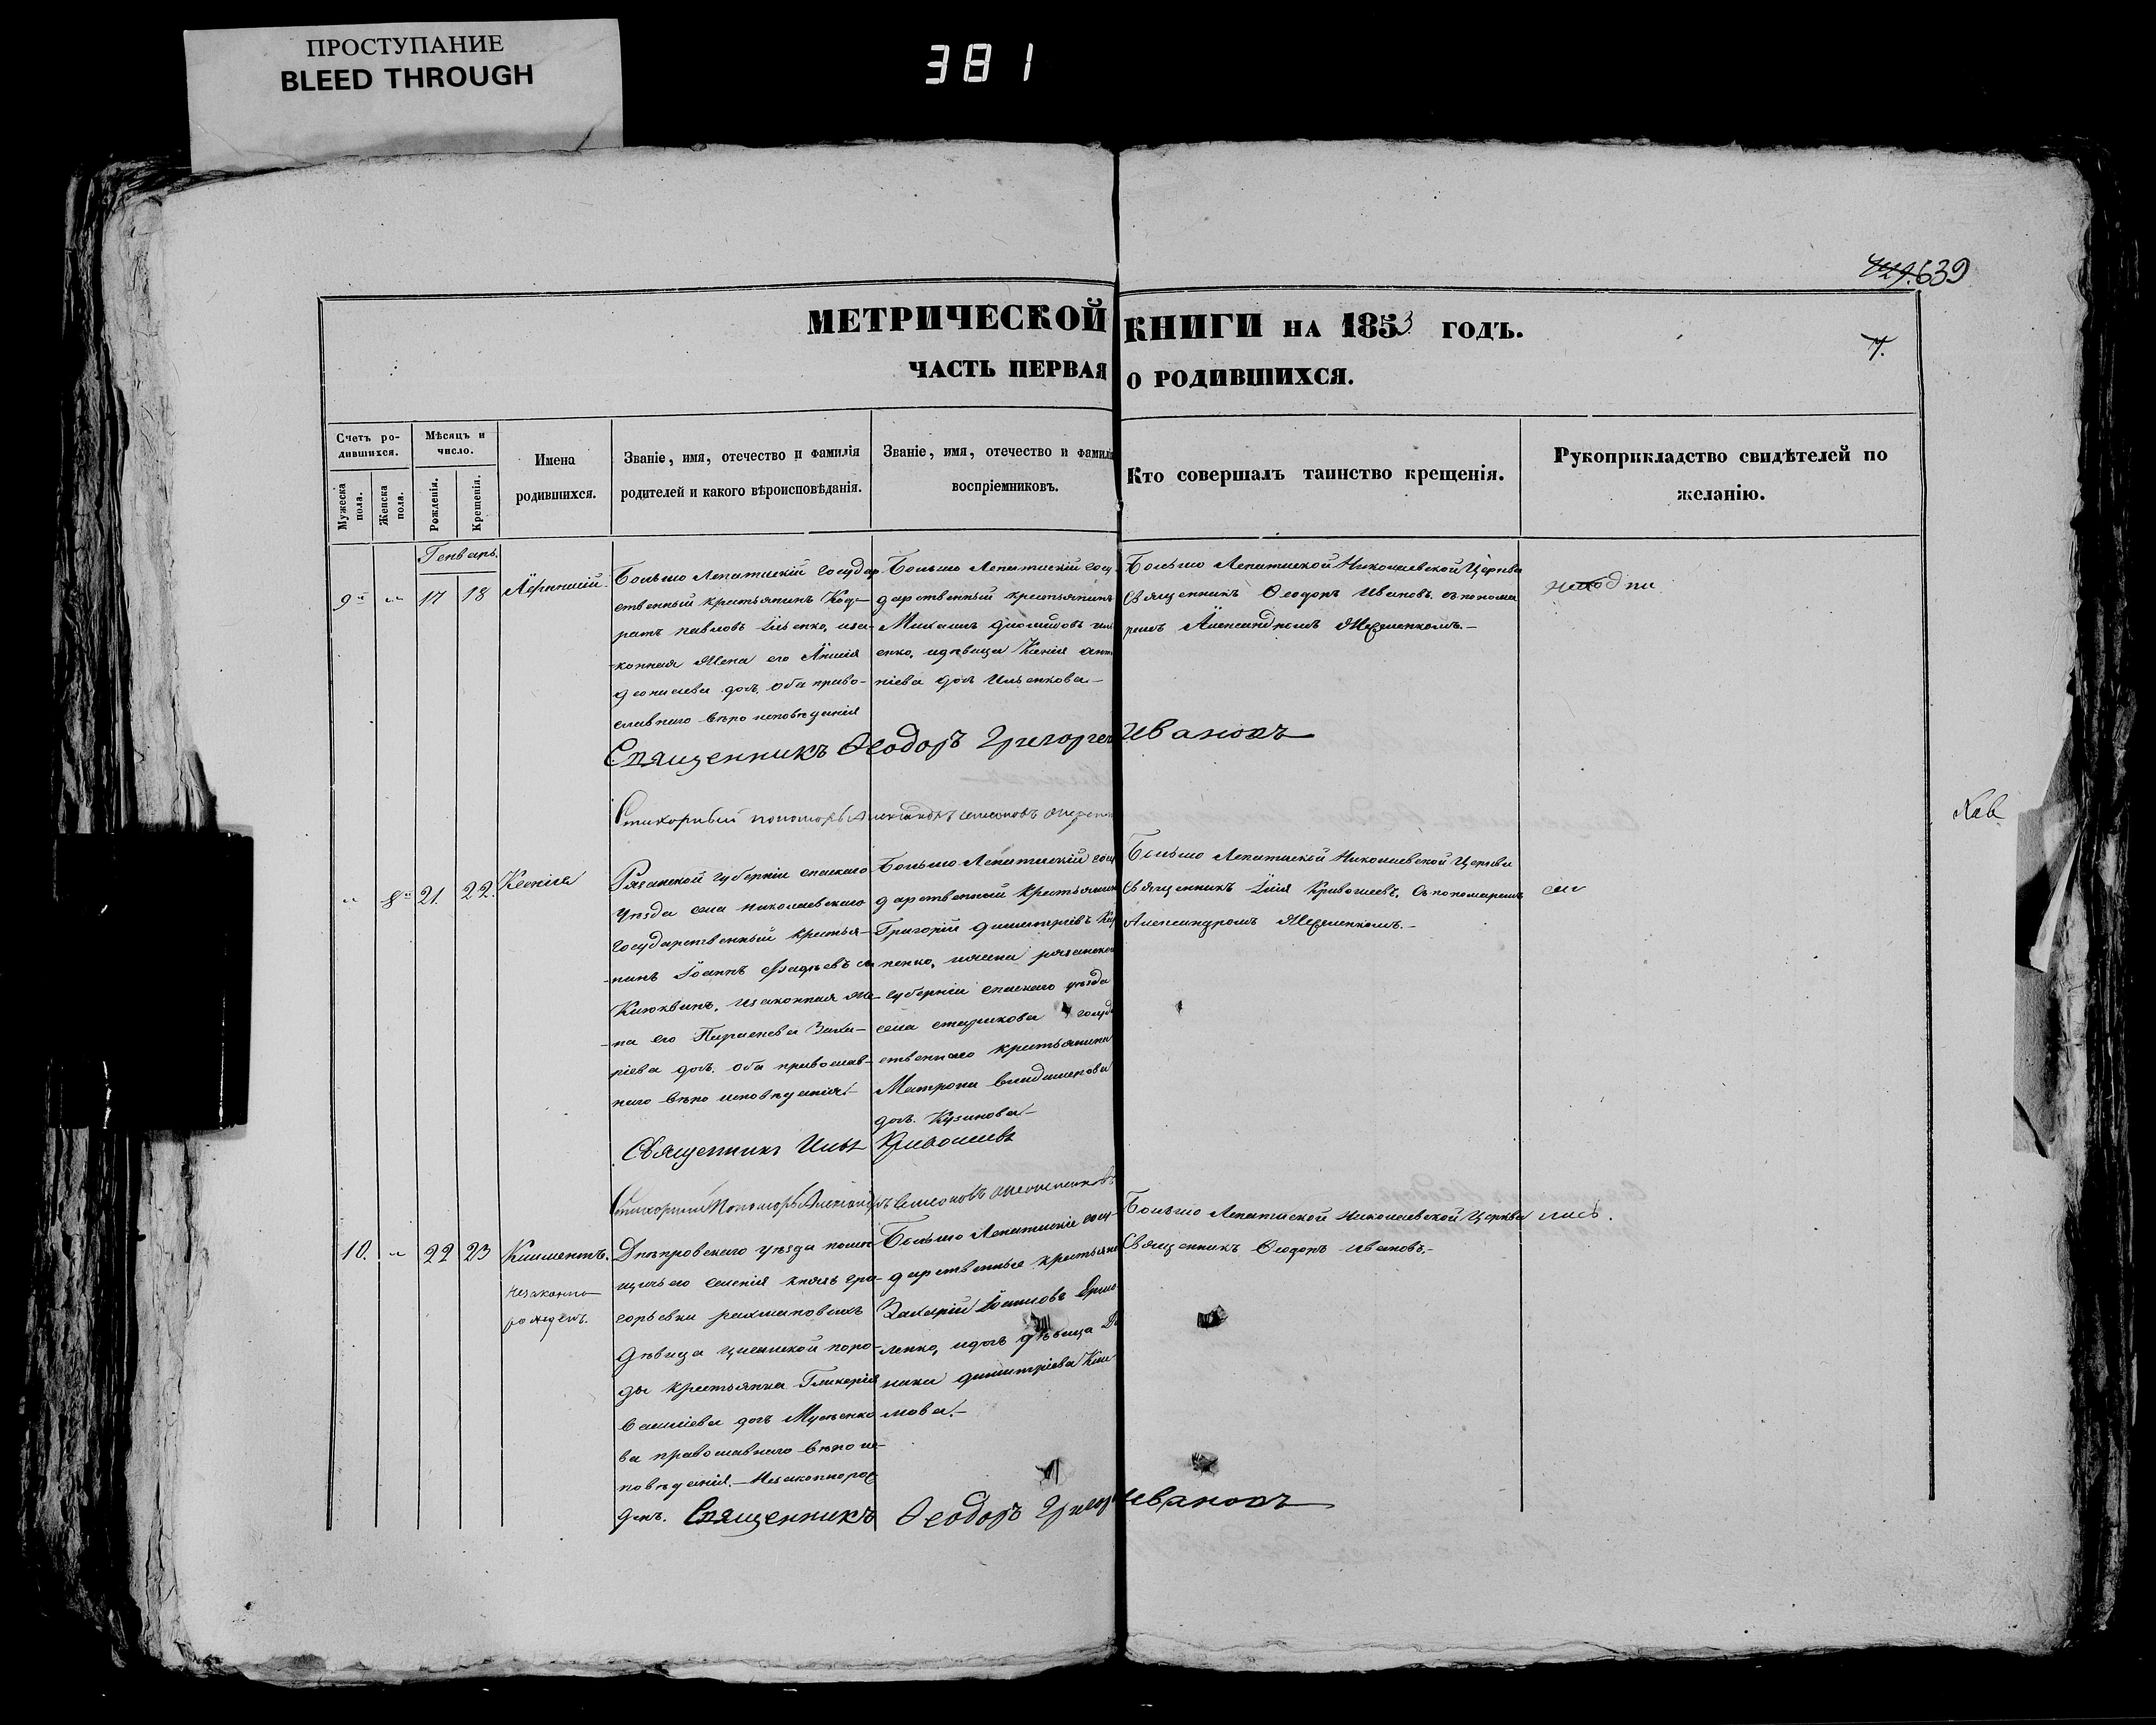 ПРОСТУПАНИЕ
BLEED THROUGH
381
639
МЕТРИЧЕСКОЙ КНИГИ НА 1853 ГОДЪ.
7.
ЧАСТЬ ПЕРВАЯ О РОДИВШИХСЯ.
Счетъ родившихся.
Мужеска пола.
Женска пола.
Мѣсяцъ и число.
Рожденія.
Крещенія.
Имена родившихся.
Званіе, имя, отечество и фамилія
родителей и какого вѣроисповѣданія.
Званіе, имя, отечество и фамилія
воспріемниковъ.
Кто совершалъ таинство крещенія.
Рукоприкладство свидѣтелей по
желанію.
Генварь.
9й
"
17
18
Больше Лепатискій государ
ственный крестьянинъ
ратъ Павловъ Ильенко, иза-
конная жена его
Діонисіева дочь. оба право-
славнаго вѣро исповѣданія
Больше Лепатискій госу
дарственный крестьянинъ
Михаилъ Діомидовъ Иль
енко, и дѣвица Ксенія Анто
ніева дочь Ильенкова.—
Больше Лепатиской Николаевской Церкви
Священникъ Ѳеодоръ Ивановъ. съ понома
ремъ Александромъ
Священникъ Ѳеодоръ Григорьевъ Ивановъ
Стихорный пономорь Александръ Симеоновъ
"
8я
21.
22.
Ксенія
Рязанской губерніи спаскаго
уѣзда села Николаевскаго
государственный крестья-
нинъ Іоаннъ
Клюквинъ, изаконная же-
на его Параскева Заха-
ріева дочь. оба православ-
наго вѣро исповѣданія.—
Больше Лепатискій госу
дарственный крестьянин
Григорій Димитріевъ Кар
пенко, и жена рязанской
губерніи спаскаго уѣзда
села государ
ственнаго крестьянина
Матрона
дочь. Кузинова.—
Больше Лепатиской Николаевской Церкви
Священникъ Илія Кривошеевъ. съ пономаремъ
Александромъ
Священникъ Илья Кривошеевъ
Стихорный Пономорь Александръ Симеоновъ
10.
"
22
23
Климентъ.
незаконно
рожденъ.
Днѣпровскаго уѣзда помѣ
щичьего селенія князь гри-
горьевки рахмановыхъ
дѣвица цыганской поро-
ды крестьянка Гликерія
Василіева дочь
ва православнаго вѣро ис-
повѣданія.— Незаконнорож
денъ.
Больше Лепатискіе госу-
дарственные крестьяне
Захарій Іоанновъ Ермо
ленко, и дочь дѣвица До
мника Димитріева Кли
мова.—
Больше Лепатиской Николаевской Церкви
Священникъ Ѳеодоръ Ивановъ.—
Священникъ Ѳеодоръ Григорьевъ Ивановъ